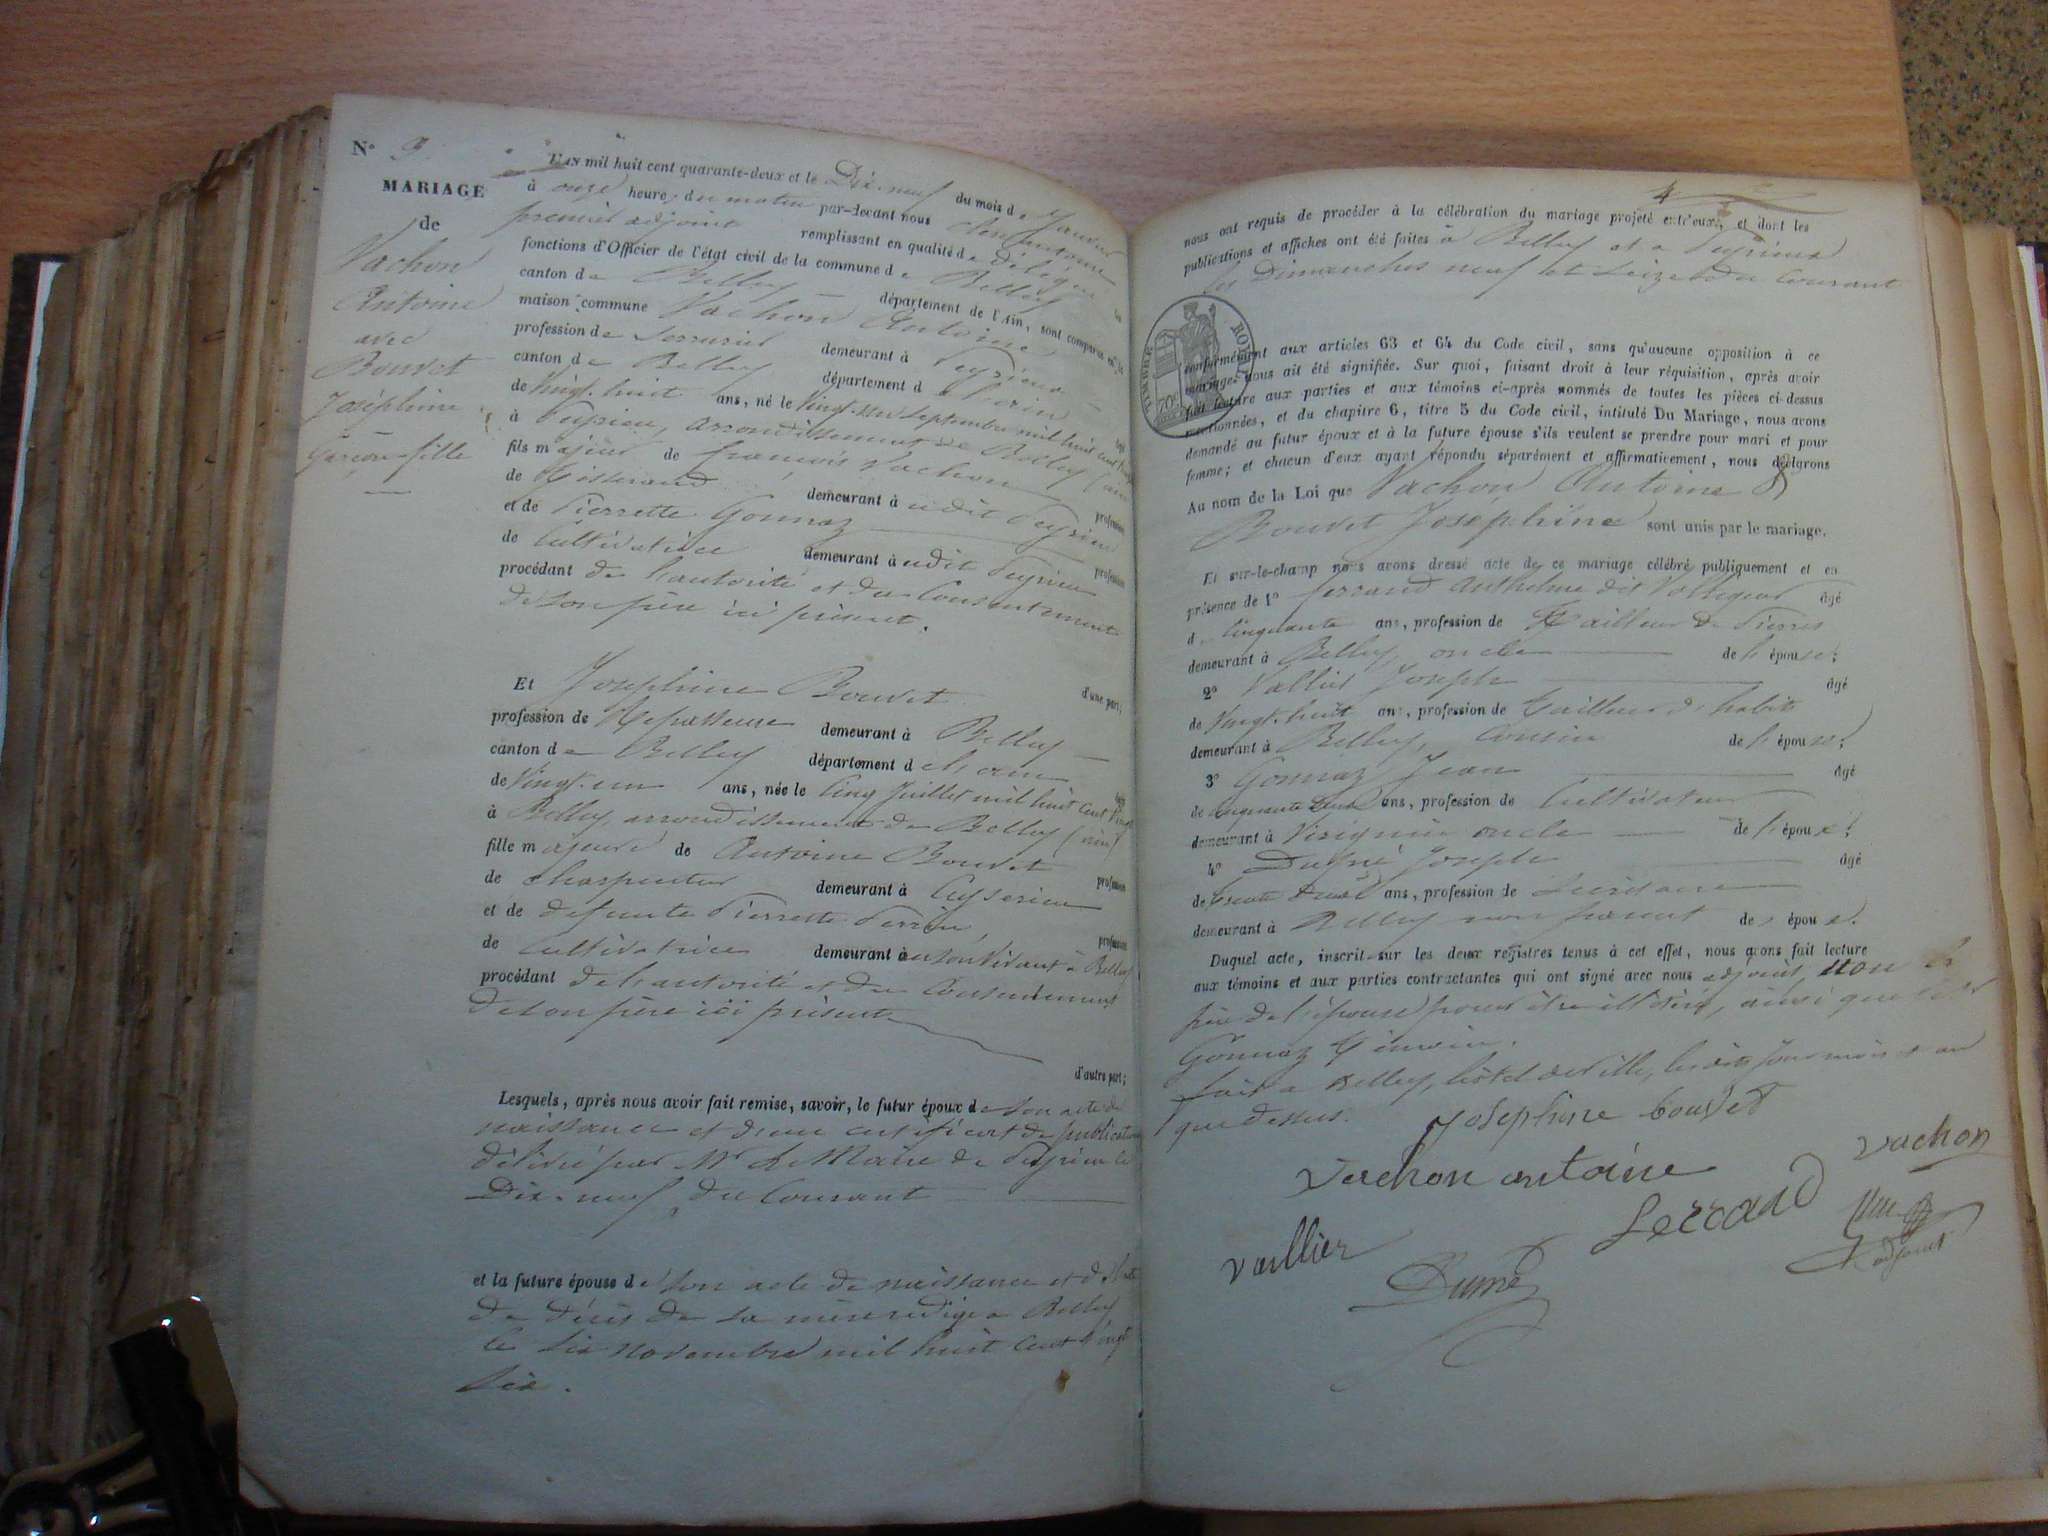 N° 3
MARIAGE
de
Vachon
Antoine
avec
Bouvet
Joséphine
Garçon fille
L'AN mil huit cent quarante-deux et le Dix-neuf du mois de Janvier
à onze heures du matin par-devant nous
premier adjoint remplissant en qualité de délégué les
fonctions d'Officier de l'état civil de la commune de Belley
canton de Belley département de l'Ain, sont comparus en la
maison commune Vachon Antoine
profession de Serrurier demeurant à Peyrieu
canton de Belley département de l'ain âgé
de Vingt-huit ans, né le Vingt septembre mil huit cent
à Peyrieu, arrondissement de Belley (ain)
fils majeur de françois Vachon profession
de Tisserand demeurant à udit Peyrieu
et de Pierrette Gonnaz profession
de Cultivatrice demeurant à udit Peyrieu
procédant de l'autorité et du Consentement
de son père ici présent.
d'une part;
Et Joséphine Bouvet
profession de Repasseuse demeurant à Belley
canton de Belley département de l'ain âgée
de Vingt-un ans, née le Cinq Juillet mil huit cent Vingt
à Belley arrondissement de Belley (ain)
fille majeure de Antoine Bouvet profession
de Charpentier demeurant à Ceyzerieu
et de défunte Pierrette Perrin, profession
de Cultivatrice demeurant à en son vivant à Belley
procédant de l'autorité et du Consentement
de son père ici présent
d'autre part;
Lesquels, après nous avoir fait remise, savoir, le futur époux de son acte de
naissance et d'un certificat de publication
délivré par Mr Le Maire de Peyrieu le
Dix-neuf du Courant
et la future épouse de son acte de naissance et de l'acte
de décès de sa mère rédigé a Belley
le six novembre mil huit cent vingt
six.
4
nous ont requis de procéder à la célébration du mariage projeté entr'eux, et dont les
publications et affiches ont été faites à Belley et a Peyrieu
les Dimanches neuf et seize du Courant
TIMBRE ROYAL
conformément aux articles 63 et 64 du Code civil, sans qu'aucune opposition à ce
mariage nous ait été signifiée. Sur quoi, faisant droit à leur réquisition, après avoir
fait lecture aux parties et aux témoins ci-après nommés de toutes les pièces ci-dessus
mentionnées, et du chapitre 6, titre 5 du Code civil, intitulé Du Mariage, nous avons
demandé au futur époux et à la future épouse s'ils veulent se prendre pour mari et pour
femme; et chacun d'eux ayant répondu séparément et affirmativement, nous déclarons
Au nom de la Loi que Vachon Antoine &
Bouvet Joséphine sont unis par le mariage.
Et sur-le-champ nous avons dressé acte de ce mariage célébré publiquement et en
présence de 1° ferrand Anthelme dit Voltigeur âgé
de Cinquante ans, profession de Tailleur de Pierres
demeurant à Belley, oncle de l'épouse;
2° Vallier Joseph âgé
de Vingt-huit ans, profession de Tailleur d'habits
demeurant à Belley, Cousin de l'épouse;
3° Gonnaz Jean âgé
de Cinquante ans, profession de Cultivateur
demeurant à Virignin oncle de l'époux;
4° Dumé Joseph âgé
de trente ans, profession de Secrétaire
demeurant à Belley non parent des époux.
Duquel acte, inscrit sur les deux registres tenus à cet effet, nous avons fait lecture
aux témoins et aux parties contractantes qui ont signé avec nous adjoint, non le
père de l'épouse pour être illitéré, ainsi que le dit
Gonnaz témoin.
fait a Belley, hôtel de ville, les dits jour mois et an
que dessus. Josephine bouvet
Vachon antoine vachon
Vallier ferrand
Dumé adjoint